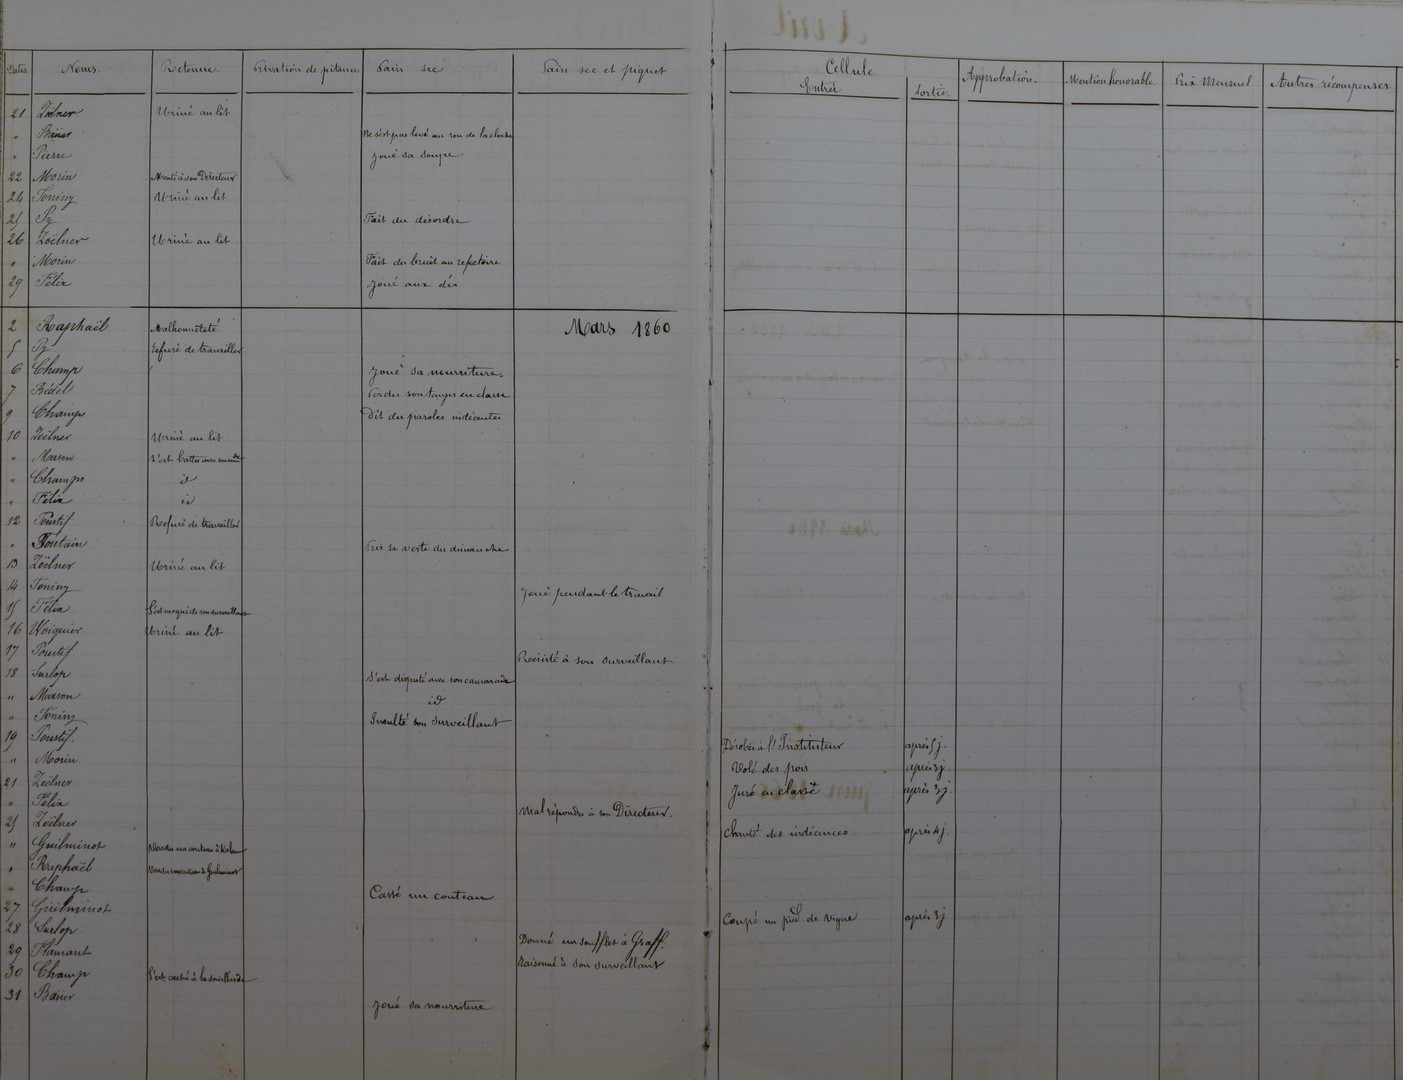 Dates Noms. Retenue. Privation de pitance Pain sec Pain sec et piquet Cellule Approbation. Mention honorable Prix Mensuel Autres récompenses
Entrée Sortie.
21 Zoëlner Uriné au lit
" Baüer Ne s'est pas levé au son de la cloche
" Pierre Joué sa soupe
22 Morin Menti à son Directeur
24 Föniny Uriné au lit
25 Py Fait du désordre
26 Zoëlner Uriné au lit
" Morin Fait du bruit au refectoire
29 Félix Joué aux dés
Mars 1860
2 Raphaël Malhonnêteté
5 Py Refusé de travailler
6 Champ Joué sa nourriture.
7 Bédel Perdu son temps en classe
9 Champ Dit des paroles indécentes
10 Zoëlner Uriné au lit
" Mason S'est battu avec
" Champ id
" Félix id
12 Poustif Refusé de travailler
" Fontain Pris sa veste du dimanche
13 Zoëlner Uriné au lit
14 Föniny Joué pendant le travail
15 Félix S'est moqué de son surveillant
16 Woiguier Uriné au lit
17 Poustif Resisté à son surveillant
18 Surlop S'est disputé avec son camarade
" Mason id
" Föniny Insulté son surveillant
19 Poustif. Dérobé à l'Instituteur après 5 j.
" Morin Volé des pois après 3 j.
21 Zoëlner Juré en classe après 3 j.
" Félix Mal répondu à son Directeur.
25 Zoëlner Chanté des indécences après 4 j.
" Guilminot Vendu un couteau à
" Raphaël à Guilminot
" Champ Cassé un couteau
27 Guilminot Coupé un pied de vigne après 3 j
28 Surlop Donné un soufflet à Graff.
29 Flamant Raisonné à son surveillant
30 Champ S'est caché à la
31 Baüer Joué sa nourriture